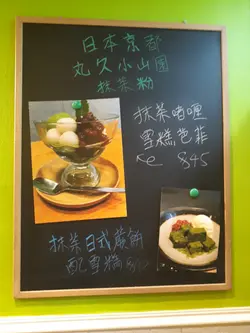 日本京都
丸久小山園
抹茶粉
抹茶啫喱
雪糕芭菲
$45
抹茶日式蕨餅
配雪糕